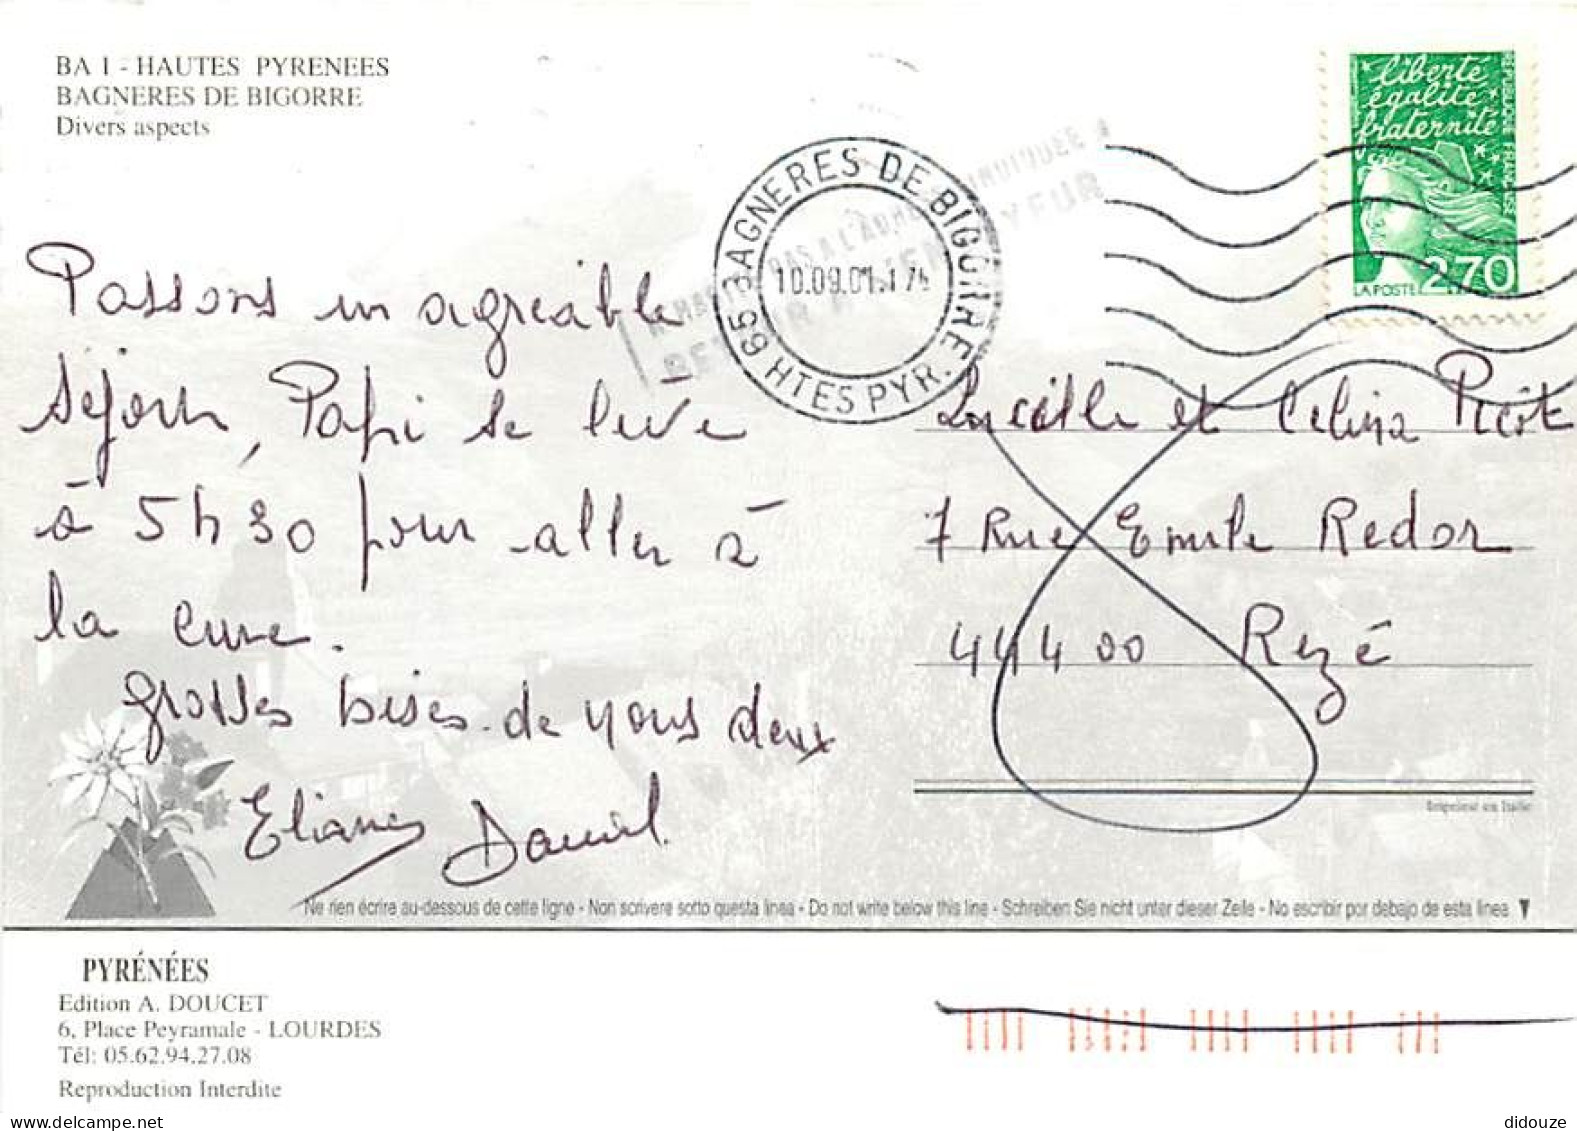 BA 1 - HAUTES PYRENEES
BAGNERES DE BIGORRE
Divers aspects
liberté
égalité
fraternité
REPUBLIQUE FRANÇAISE
LA POSTE 2,70
65 BAGNERES DE BIGORRE
HTES PYR.
10.09.01
Passons un agréable
séjour, Papi se lève
à 5h30 pour aller à
la cure.
Grosses bises de nous deux
Eliane Daniel
et Celina Picot
7 Rue Emile Redor
44400 Rezé
Imprimé en Italie
Ne rien écrire au-dessous de cette ligne - Non scrivere sotto questa linea - Do not write below this line - Schreiben Sie nicht unter dieser Zeile - No escribir por debajo de esta linea
PYRÉNÉES
Edition A. DOUCET
6, Place Peyramale - LOURDES
Tél: 05.62.94.27.08
Reproduction Interdite
didouze